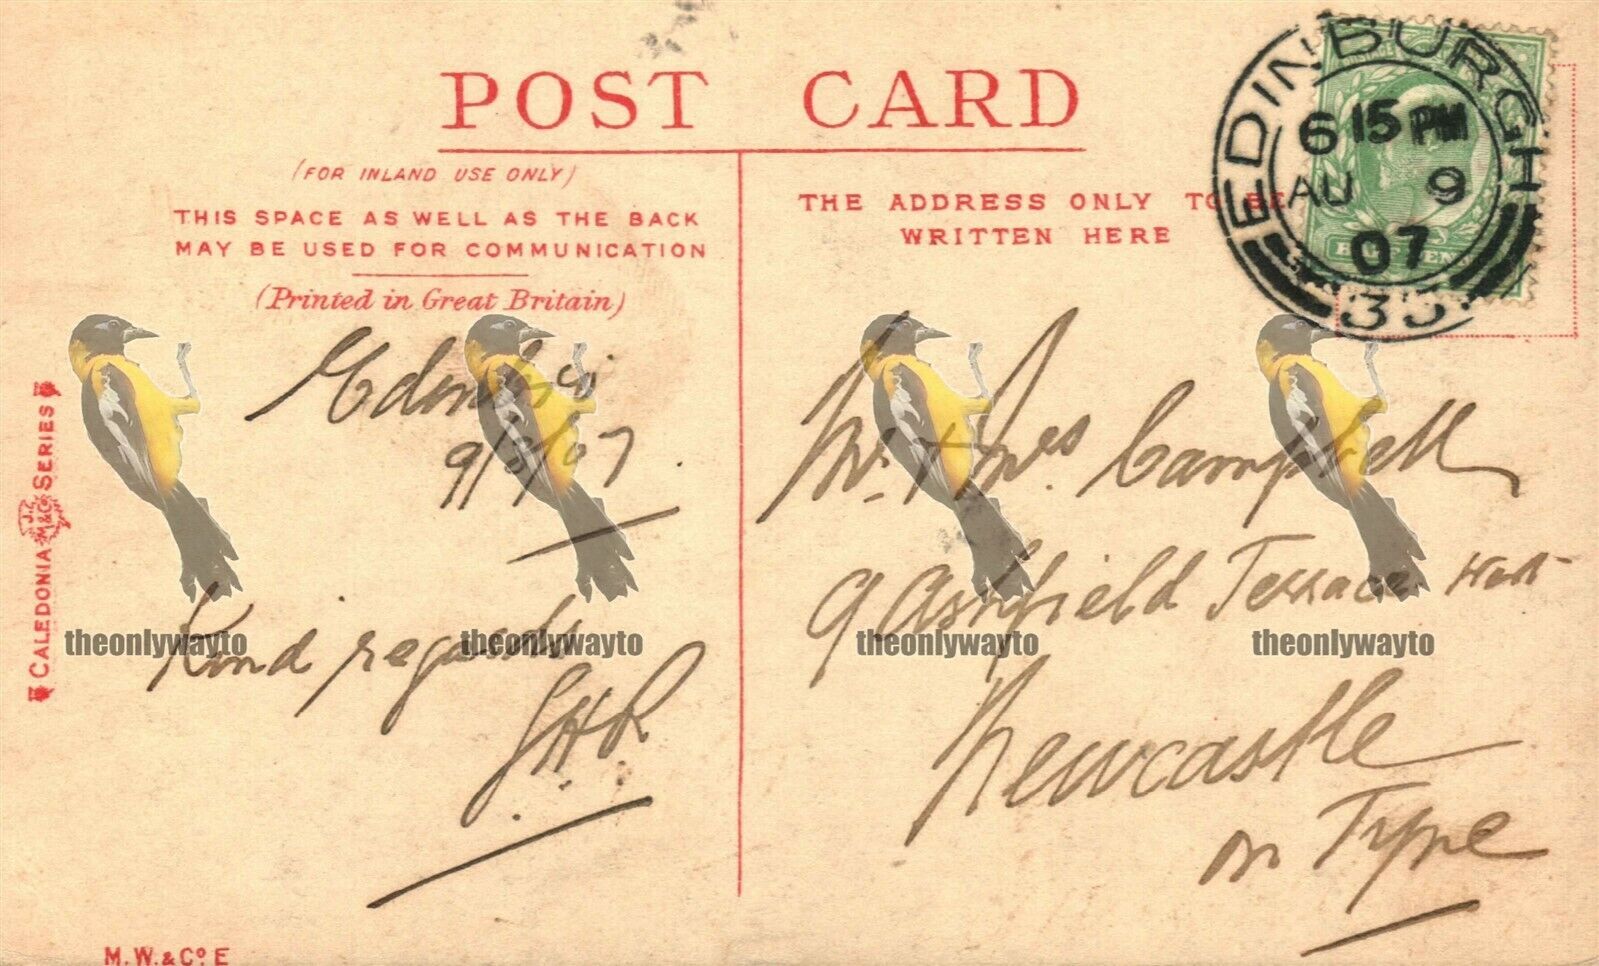 POST CARD
(FOR INLAND USE ONLY)
THIS SPACE AS WELL AS THE BACK
MAY BE USED FOR COMMUNICATION
(Printed in Great Britain)
THE ADDRESS ONLY TO BE
WRITTEN HERE
EDINBURGH
6 15 PM
AU 9
07
CALEDONIA SERIES
J.
M&Co
9/8/07.
Kind regards
Mr. & Mrs Campbell
9 Ashfield Terrace West
Newcastle
on Tyne
theonlywayto
theonlywayto
theonlywayto
theonlywayto
M.W.&Co E